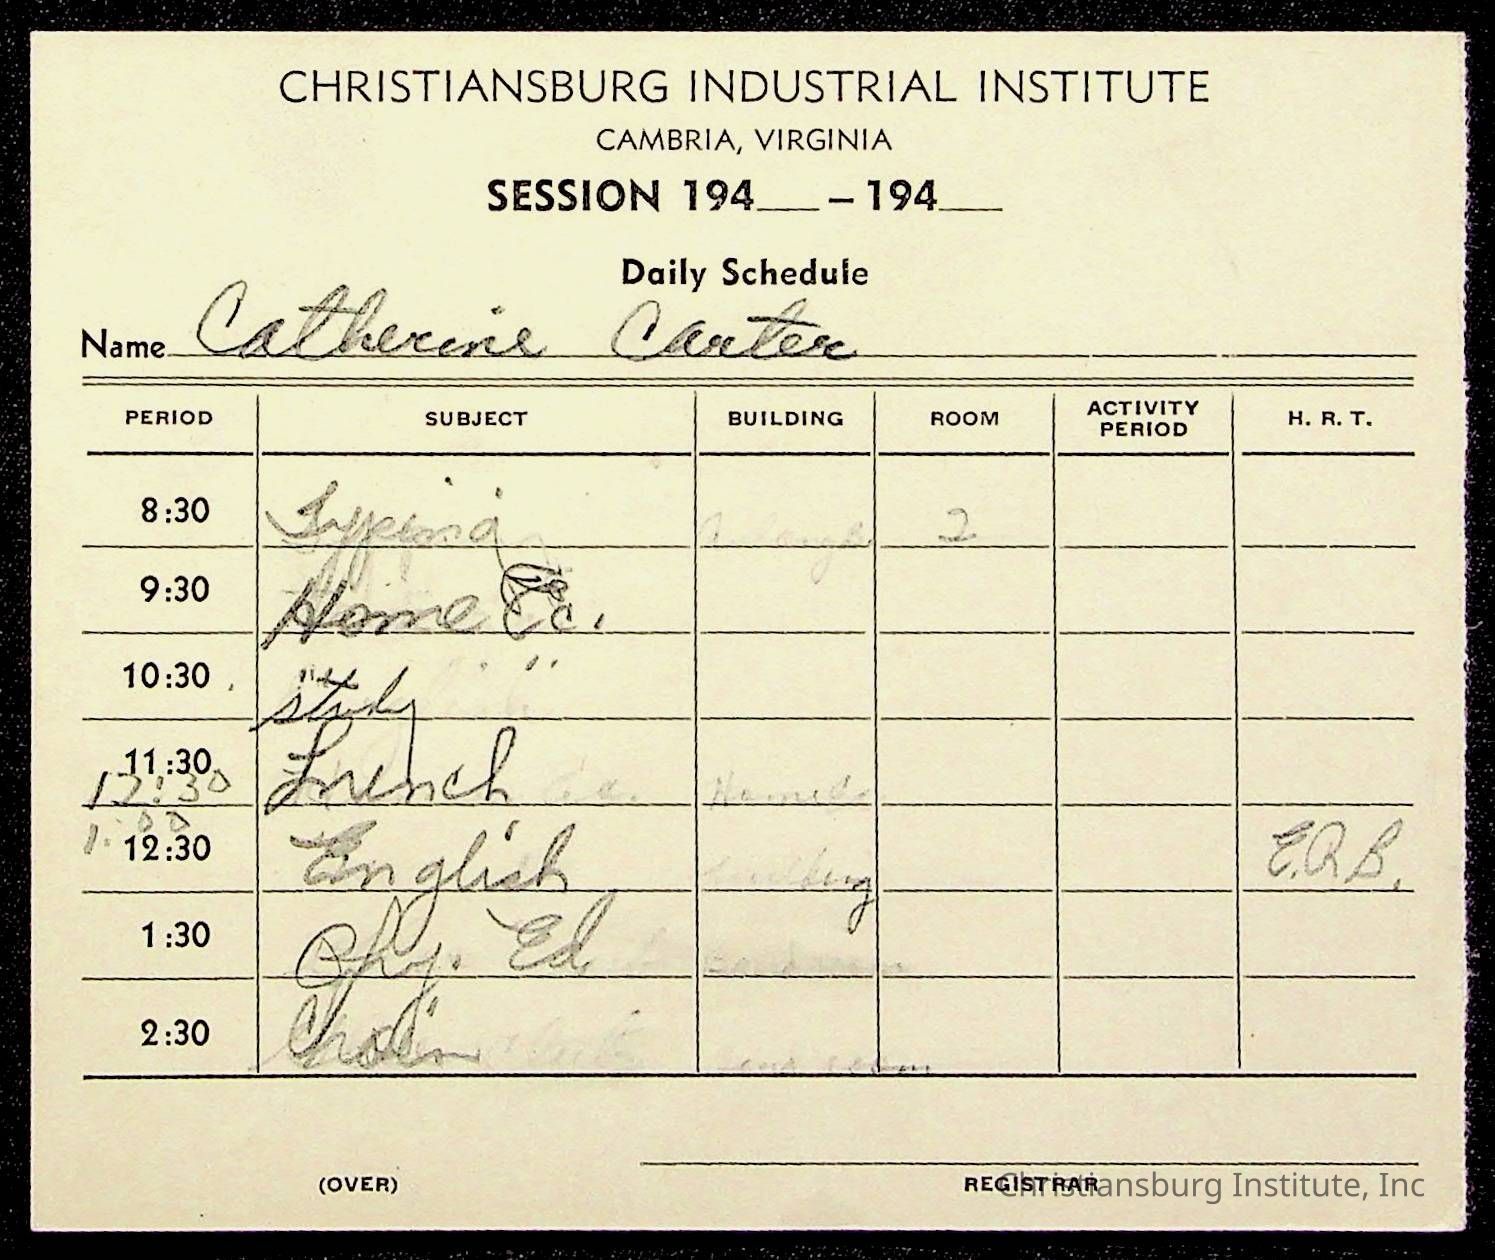 CHRISTIANSBURG INDUSTRIAL INSTITUTE
CAMBRIA, VIRGINIA
SESSION 194___ – 194___
Daily Schedule
Name Catherine Carter
PERIOD SUBJECT BUILDING ROOM ACTIVITY PERIOD H. R. T.
8:30 Typing 2
9:30 Home Ec.
10:30 study
11:30 French
12:30
1:00
12:30 English E.R.B.
1:30 Phy. Ed
2:30 Choir
(OVER) REGISTRAR
Christiansburg Institute, Inc